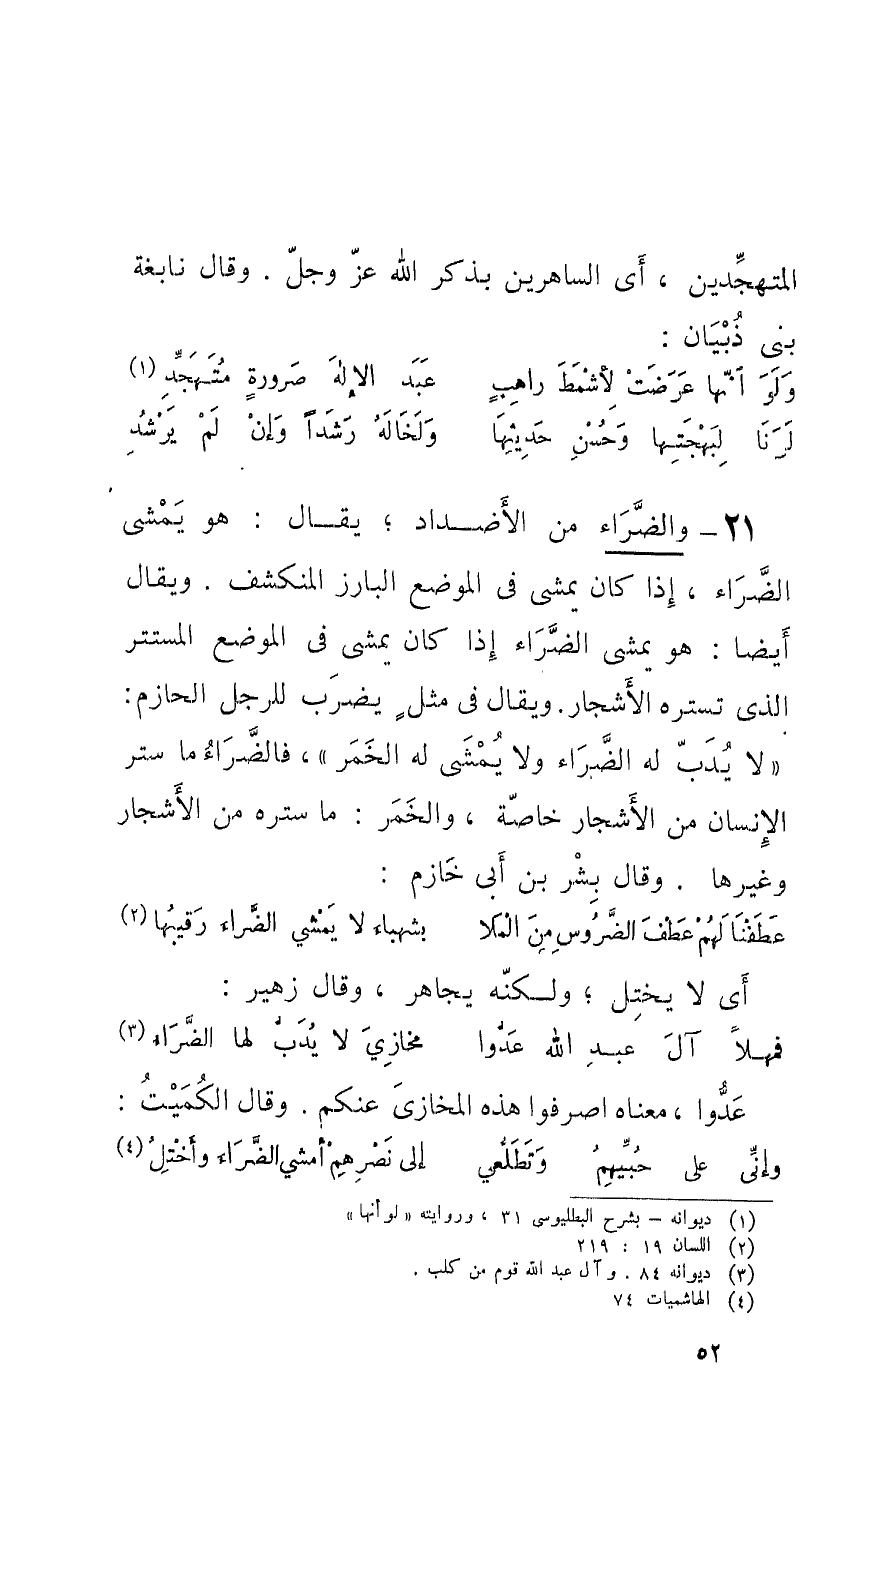 المتهجِّدين ، أَى الساهرين بذكر الله عزّ وجلّ . وقال نابغة
بنى ذُبْيَان :
وَلَوَ اَنَّها عَرَضَتْ لِأَشْمَطَ راهِبٍ عَبَدَ الإلهَ صَرورةٍ مُتَهَجِّدِ (١)
لَرَنَا لِبَهْجَتِها وَحُسْنِ حَدِيثِهَا وَلَخَالَهُ رَشَداً وَإنْ لَمْ يَرْشُدِ
٢١ - والضَّرَاء من الأَضداد ؛ يقال : هو يَمْشى
الضَّرَاء ، إِذا كان يمشى فى الموضع البارز المنكشف . ويقال
أَيضا : هو يمشى الضَّرَاء إِذا كان يمشى فى الموضع المستتر
الذى تستره الأَشجار . ويقال فى مثلٍ يضرَب للرجل الحازم :
« لا يُدَبّ له الضَّرَاء ولا يُمْشَى له الخَمَر » ، فالضَّرَاءُ ما ستر
الإِنسان من الأَشجار خاصّة ، والخَمَر : ما ستره من الأَشجار
وغيرها . وقال بِشْر بن أَبى خَازم :
عَطَفْنَا لَهُمْ عَطْفَ الضَّرُوسِ مِنَ الْمَلا بشهباء لا يَمْشي الضَّراء رَقيبُها (٢)
أَى لا يختِل ؛ ولكنّه يجاهر ، وقال زهير :
فمهلاً آلَ عبدِ الله عَدُّوا مخازِيَ لا يُدَبُّ لها الضَّرَاء (٣)
عَدُّوا ، معناه اصرفوا هذه المخازىَ عنكم . وقال الكُمَيْتُ :
وإنِّى على حُبِّيهِمُ وَتَطَلُّعي إلى نَصْرِهِمْ أمشي الضَّرَاء وأخْتِلُ (٤)
(١) ديوانه – بشرح البطليوسى ٣١ ، وروايته « لو أنها »
(٢) اللسان ١٩ : ٢١٩
(٣) ديوانه ٨٤ . وآل عبد الله قوم من كلب .
(٤) الهاشميات ٧٤
٥٢